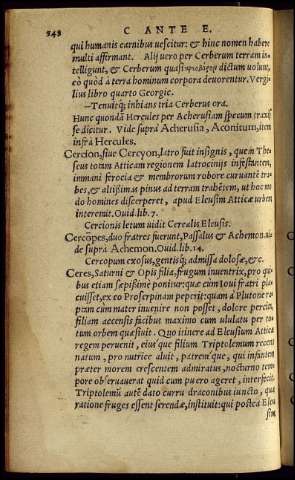 348 C ANTE E.
qui humanis carnibus uescitur: & hinc nomen habere
multi affirmant. Alij uero per Cerberum terram in-
telligunt, & Cerberum quasi dictum uolunt,
cò quòd à terra hominum corpora deuorentur. Vergi-
lius libro quarto Georgic.
—Tenuitq; inhians tria Cerberus ora.
Hunc quondā Hercules per Acherusiam specum traxis
se dicitur. Vide suprà Acherusia, Aconitum, item
infrà Hercules.
Cercion, siue Cercyon, latro fuit insignis, quem The-
seus totam Atticam regionem latrocinijs infestantem,
inmani ferocia & membrorum robore curuantē tra-
bes, & altißimas pinus ad terram trahētem, ut hoc mo
do homines discerperet, apud Eleusim Atticæ urbem
interemit. Ouid. lib. 7.
Cercionis letum uidit Cerealis Eleusis.
Cercōpes, duo fratres fuerunt, Passalus & Achemon. ui
de suprà Achemon. Ouid. lib. 14.
Cercopum exosus, gentisq; admissa dolosæ, & c.
Ceres, Saturni & Opis filia, frugum inuentrix, pro qui
bus etiam sæpißimè ponitur: quæ cum Ioui fratri pla-
cuisset, ex eo Proserpinam peperit: quam à Plutone ra-
ptam cum mater inuenire non posset, dolore percita,
filiam accensis facibus maximo cum ululatu per to-
tum orbem quæsiuit. Quo itinere ad Eleusium Atticæ
regem peruenit, eiusque filium Triptolemum recens
natum, pro nutrice aluit, patremque, qui infantem
præter morem crescentem admiratus, nocturno tem
pore obseruauerat quid cum puero ageret, interfecit.
Triptolemū autē dato curru draconibus iuncto, qua
ratione fruges essent serendæ, instituit: qui postea Eleu
sim